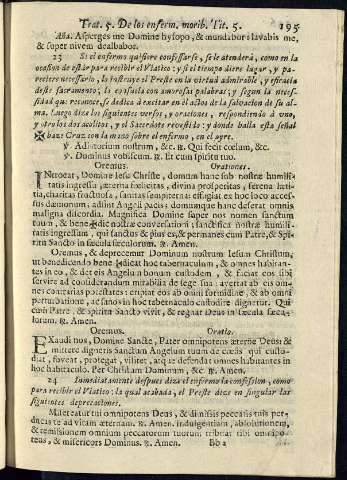 Trat. 5. De los enferm. morib. Tit. 5. 195
Aña. Asperges me Domine hysopo, & mundabor: lavabis me,
& super nivem dealbabor.
23 Si el enfermo quisiere confessarse, se le atenderá, como en la
ocasion de estàr para recibir el Viatico: y si el tiempo diere lugar, y pa-
reciere necessario, lo instruye el Preste en la virtud admirable, y eficacia
deste Sacramento; lo consuela con amorosas palabras; y segun la neces-
sidad que reconoce, se dedica á excitar en èl actos de la salvacion de su al-
ma. Luego dize los siguientes versos, y oraciones, respondiendo à uno,
y otro los dos acolitos, y el Sacerdote revestido: y donde halla esta señal
✠ haze Cruz con la mano sobre el enfermo, en el ayre.
℣ Adjutorium nostrum, &c. ℟. Qui fecit cœlum, &c.
℣ Dominus vobiscum. ℟. Et cum spiritu tuo.
Oremus. Orationes.
INtroeat, Domine Iesu Christe, domum hanc sub nostræ humili-
tatis ingressu, æterna fœlicitas, divina prosperitas, serena læti-
tia, charitas fructuosa, sanitas sempiterna: effugiat ex hoc loco acces-
sus dæmonum; adsint Angeli pacis; domumque hanc deserat omnis
maligna discordia. Magnifica Domine super nos nomen sanctum
tuum, & bene✠dic nostræ conversationi; sanctifica nostræ humili-
tatis ingressum, qui sanctus & pius es, & permanes cum Patre, & Spi-
ritu Sancto in sæcula sæculorum. ℟. Amen.
Oremus, & deprecemur Dominum nostrum Iesum Christum,
ut benedicendo bene✠dicat hoc tabernaculum, & omnes habitan-
tes in eo, & det eis Angelum bonum custodem, & faciat eos sibi
servire ad considerandum mirabilia de lege sua; avertat ab eis om-
nes contrarias potestates: eripiat eos ab omni formidine, & ab omni
perturbatione, ac sanos in hoc tabernaculo custodire dignetur. Qui
cum Patre, & spiritu Sancto vivit, & regnat Deus in sæcula sæcu-
lorum. ℟. Amen.
Oremus. Oratio.
EXaudi nos, Domine Sancte, Pater omnipotens æterne Deus: &
mittere digneris Sanctum Angelum tuum de cœlis qui custo-
diat, foveat, protegat, visitet, atque defendat omnes habitantes in
hoc habitaculo. Per Christum Dominum, &c. ℟. Amen.
24 Inmediatamente despues dize el enfermo la confession, como
para recibir el Viatico: la qual acabada, el Preste dize en singular las
siguientes deprecaciones.
Misereatur tui omnipotens Deus, & dimissis peccatis tuis per-
ducat te ad vitam æternam. ℟. Amen. Indulgentiam, absolutionem,
& remissionem omnium peccatorum tuorum, tribuat tibi omnipo-
tens, & misericors Dominus. ℟. Amen. Bb 2